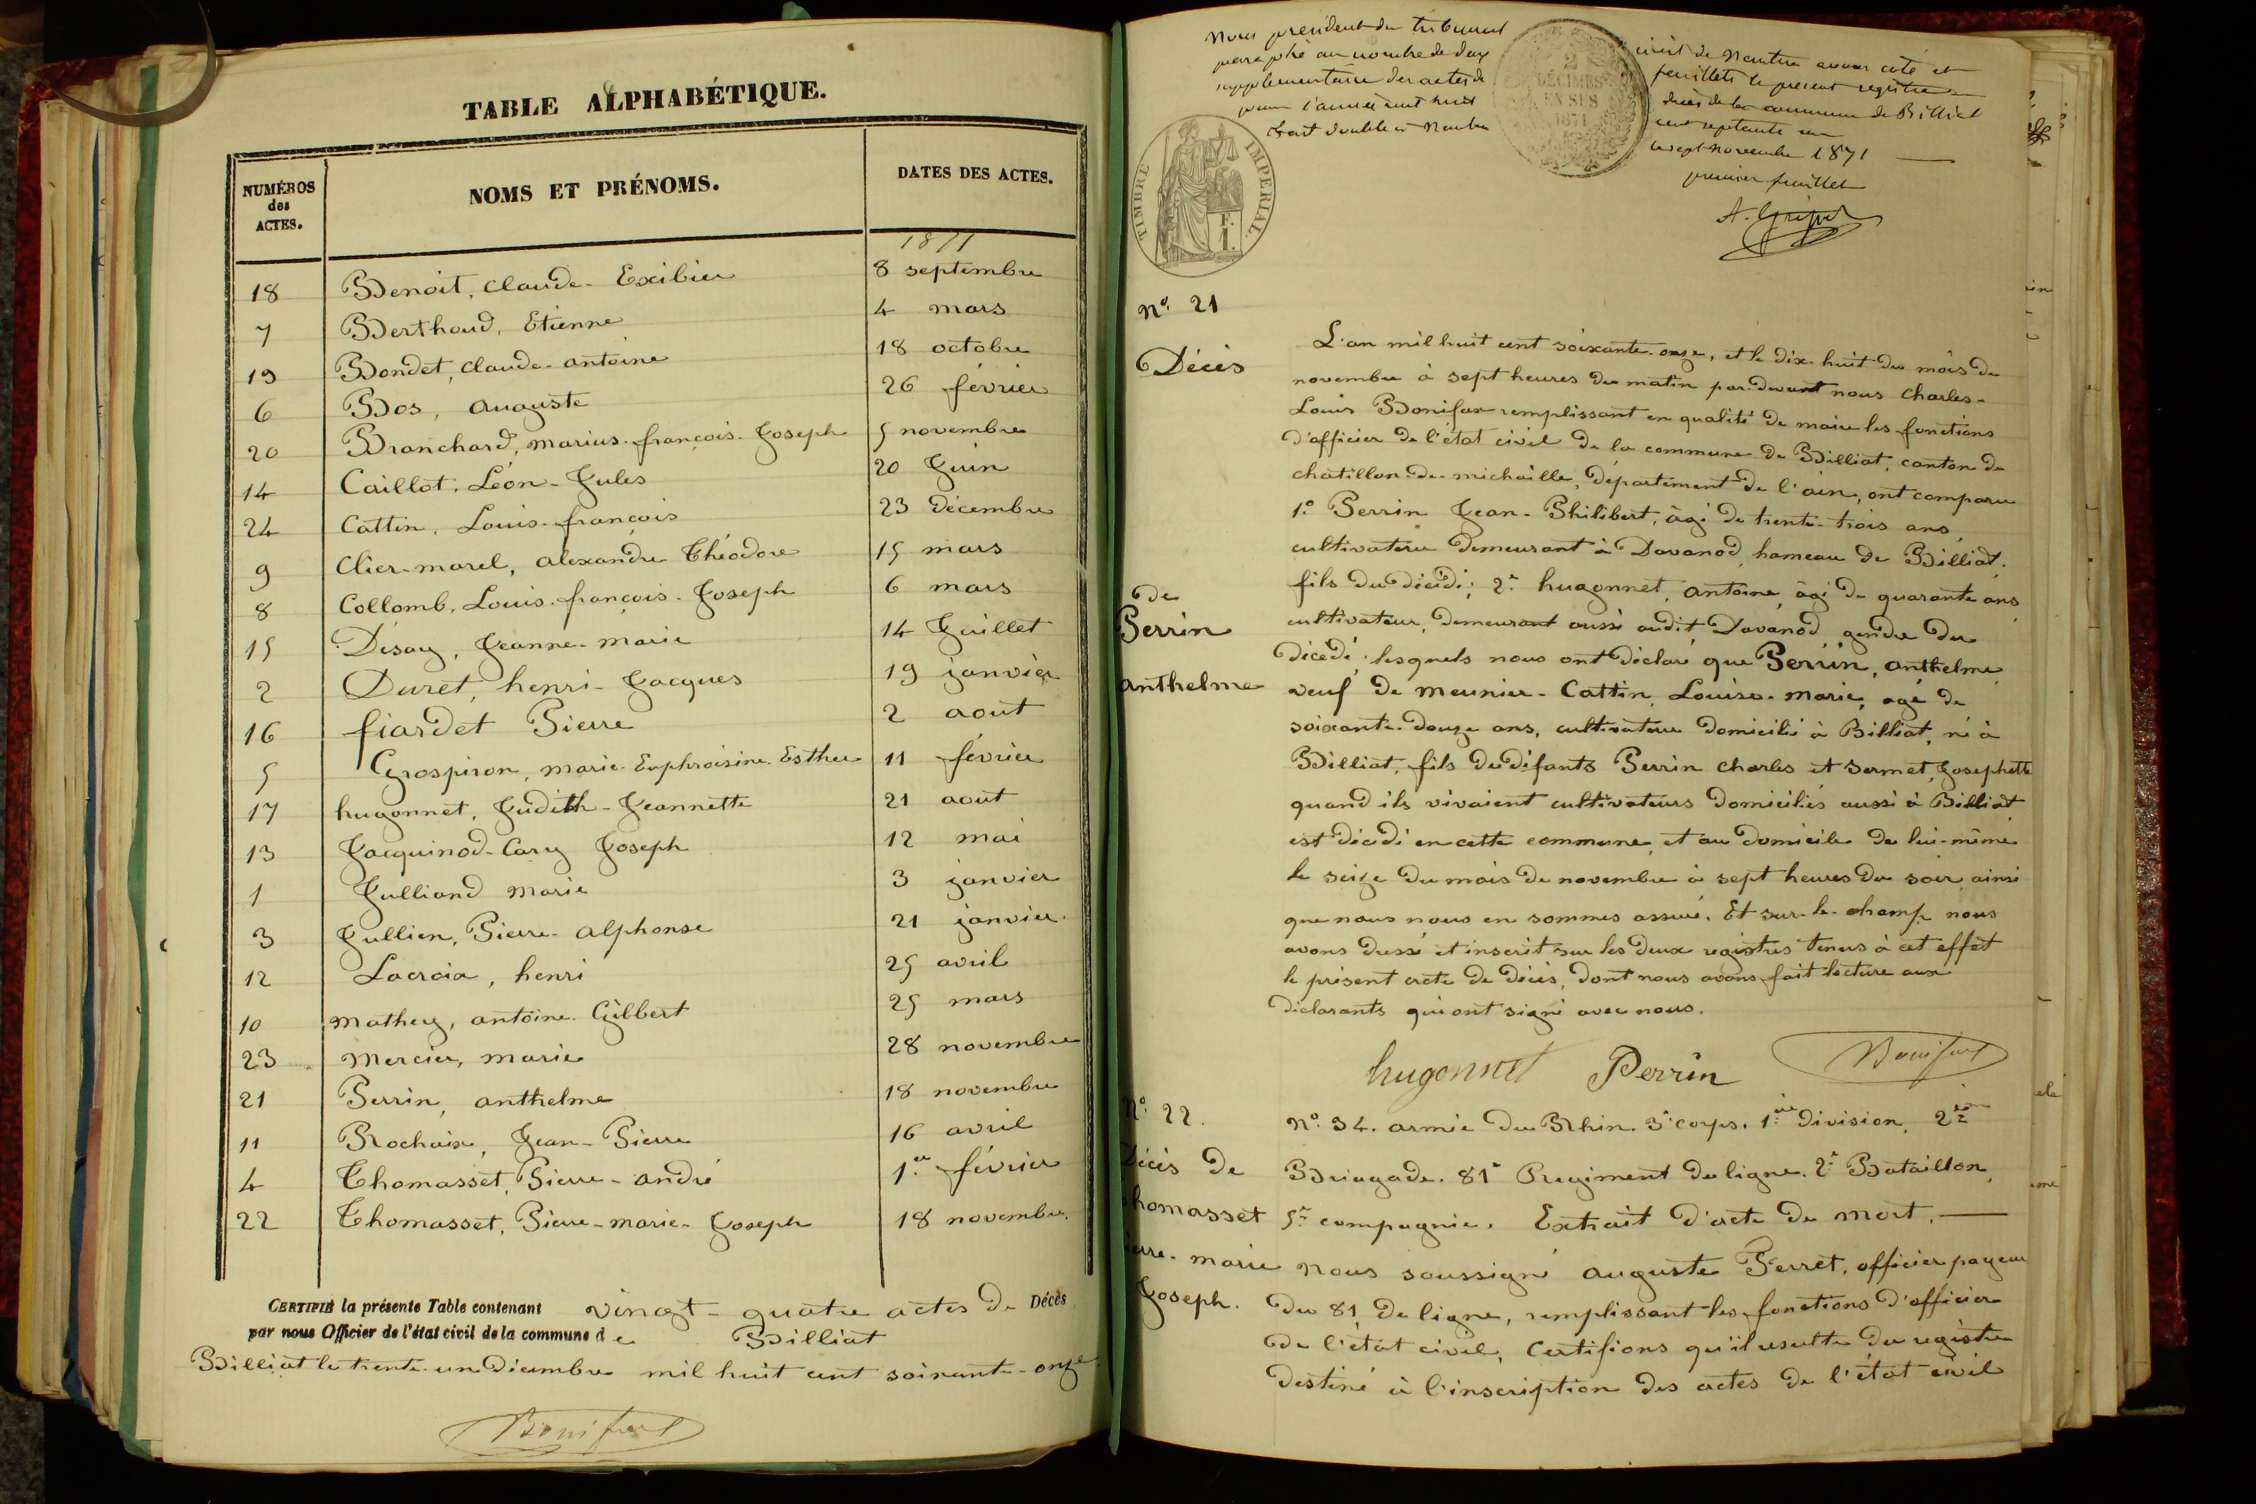 TABLE ALPHABÉTIQUE.
NUMÉROS des ACTES. NOMS ET PRÉNOMS. DATES DES ACTES.
1871
18 Benoit, Claude- Exibier 8 septembre
7 Berthoud, Etienne 4 mars
19 Bondet, Claude-antoine 18 octobre
6 Bos, auguste 26 février
20 Branchard, marius-françois-Joseph 5 novembre
14 Caillot, Léon-Jules 20 Juin
24 Cattin, Louis-françois 23 décembre
9 Clier-marel, alexandre Théodore 15 mars
8 Collomb, Louis-françois-Joseph 6 mars
15 Désay, Jeanne-marie 14 Juillet
2 Duret, henri-Jacques 19 janvier
16 fiardet Pierre 2 aout
5 Grospiron, marie Euphroisine Esther 11 février
17 hugonnet, Judith-Jeannette 21 aout
13 Jacquinod-Cary Joseph 12 mai
1 Julliand marie 3 janvier
3 Jullien, Pierre-alphonse 21 janvier.
12 Lacroix, henri 25 avril
10 mathey, antoine Gilbert 25 mars
23 mercier, marie 28 novembre
21 Perrin, anthelme 18 novembre
11 Rochaix, Jean-Pierre 16 avril
4 Thomasset, Pierre-andré 1.er février
22 Thomasset, Pierre-marie-Joseph 18 novembre.
CERTIFIÉ la présente Table contenant vingt-quatre actes de Décès
par nous Officier de l'état civil de la commune de Billiat
Billiat le trente-un Décembre mil huit cent soixante-onze
Bonifax
Nous président du tribunal civil de Nantua avons coté et
paraphé au nombre de deux feuillets le présent registre
supplémentaire des actes de décès de la commune de Billiat
pour l'année mil huit cent septante un
fait double à Nantua le sept novembre 1871
premier feuillet
2 DÉCIMES EN SUS 1871
TIMBRE IMPERIAL.
F. 1.
N.o 21
Décès
de
Perrin
anthelme
L'an mil huit cent soixante-onze, et le dix-huit du mois de
novembre à sept heures du matin par devant nous Charles-
Louis Bonifax remplissant en qualité de maire les fonctions
d'officier de l'état civil de la commune de Billiat, canton de
chatillon-de-michaille, département de l'ain, ont comparu
1.o Perrin Jean-Philibert, âgé de trente-trois ans,
cultivateur demeurant à Davanod, hameau de Billiat,
fils du décédé; 2.o hugonnet, antoine, âgé de quarante ans
cultivateur, demeurant aussi audit Davanod, gendre du
décédé; lesquels nous ont déclaré que Perrin, anthelme
veuf de meunier-Cattin, Louise-marie, agé de
soixante-douze ans, cultivateur domicilié à Billiat, né à
Billiat, fils de défunts Perrin Charles et Sermet, Josephette
quand ils vivaient cultivateurs domiciliés aussi à Billiat
est décédé en cette commune, et au domicile de lui-même
le seize du mois de novembre à sept heures du soir ainsi
que nous nous en sommes assuré. Et sur-le-champ nous
avons dressé et inscrit sur les deux registres tenus à cet effet
le présent acte de décès, dont nous avons fait lecture aux
déclarants qui ont signé avec nous.
hugonnet Perrin Bonifax
N.o 22.
Décès de
Thomasset
Pierre-marie
Joseph.
N.o 34. armée du Rhin. 3.e corps. 1.ère division, 2.e
Brigade. 81e Régiment de ligne. 2.e Bataillon,
5.e compagnie. Extrait d'acte de mort.
nous soussigné auguste Perret, officier payeur
du 81 de ligne, remplissant les fonctions d'officier
de l'état civil, Certifions qu'il résulte du registre
destiné à l'inscription des actes de l'état civil